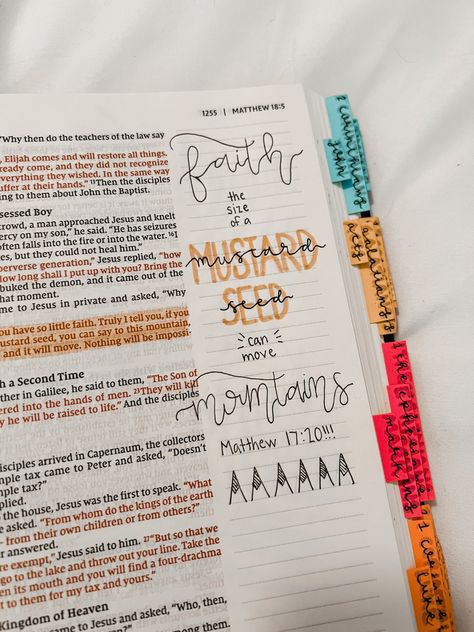 1255 | MATTHEW 18:5
"Why then do the teachers of the law say
Elijah comes and will restore all things.
already come, and they did not recognize
everything they wished. In the same way
suffer at their hands." 13Then the disciples
ing to them about John the Baptist.
ssessed Boy
crowd, a man approached Jesus and knelt
ercy on my son," he said. "He has seizures
often falls into the fire or into the water. 16I
es, but they could not heal him."
perverse generation," Jesus replied, "how
low long shall I put up with you? Bring the
buked the demon, and it came out of the
hat moment.
to Jesus in private and asked, "Why
ou have so little faith. Truly I tell you, if you
ustard seed, you can say to this mountain,
and it will move. Nothing will be impossi-
h a Second Time
ther in Galilee, he said to them, "The Son of
ered into the hands of men. 23They will kill
y he will be raised to life." And the disciples
isciples arrived in Capernaum, the collectors
mple tax came to Peter and asked, "Doesn't
mple tax?"
plied.
to the house, Jesus was the first to speak. "What
e asked. "From whom do the kings of the earth
— from their own children or from others?"
er answered.
re exempt," Jesus said to him. 27"But so that we
go to the lake and throw out your line. Take the
en its mouth and you will find a four-drachma
t to them for my tax and yours."
Kingdom of Heaven
e to Jesus and asked, "Who, then,
faith
the
size
of a
MUSTARD
mustard
SEED
seed
can
move
mountains
Matthew 17:20!!!